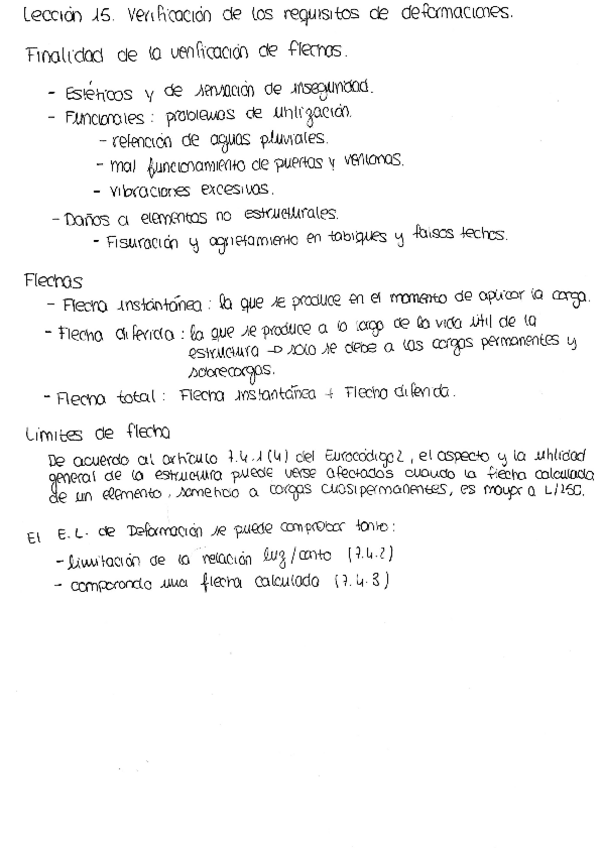 Lección 15. Verificación de los requisitos de deformaciones.
Finalidad de la verificación de flechas.
- Estéticos y de sensación de inseguridad.
- Funcionales: problemas de utilización.
- retención de aguas pluviales.
- mal funcionamiento de puertas y ventanas.
- vibraciones excesivas.
- Daños a elementos no estructurales.
- Fisuración y agrietamiento en tabiques y falsos techos.
Flechas
- Flecha instantánea: la que se produce en el momento de aplicar la carga.
- Flecha diferida: la que se produce a lo largo de la vida útil de la
estructura → solo se debe a las cargas permanentes y
sobrecargas.
- Flecha total: Flecha instantánea + Flecha diferida.
Límites de flecha
De acuerdo al artículo 7.4.1(4) del Eurocódigo 2, el aspecto y la utilidad
general de la estructura puede verse afectados cuando la flecha calculada
de un elemento, sometido a cargas cuasipermanentes, es mayor a L/250.
El E.L. de Deformación se puede comprobar tanto:
- limitación de la relación luz/canto (7.4.2)
- comparando una flecha calculada (7.4.3)